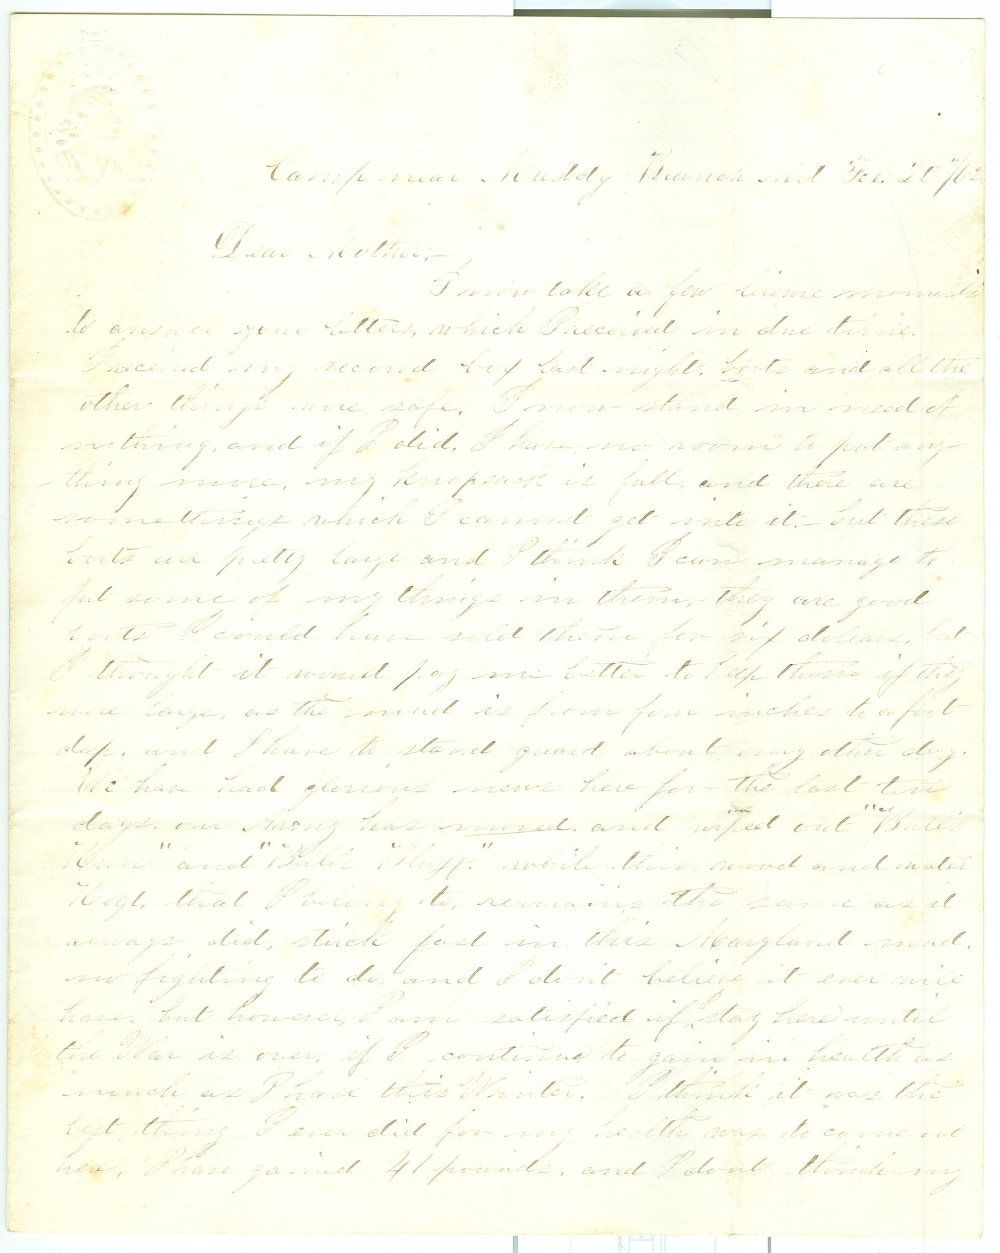 Camp near Muddy Branch Md Feb. 20 /62
Dear Mother;—
I now take a few leisure moments
to answer your letters, which I received in due time.
I received my second box last night, boots and all the
other things were safe. I now stand in need of
nothing, and if I did, I have no room to put any-
-thing more, my knapsack is full, and there are
some things which I cannot get into it:— but these
boots are pretty large and I think I can manage to
put some of my things in them,— they are good
boots I could have sold them for six dollars, but
I thought it would pay me better to keep them if they
were large, as the mud is from four inches to a foot
deep, and I have to stand guard about evry other day.
We have had glorious news here for the last ten
days, our Army has moved, and wiped out "Bull's
Run" and "Ball's Bluff." while this wood and water
Regt. that I belong to, remains the same as it
always did, stuck fast in this Maryland mud.
no fighting to do, and I dont believe it ever will
have, but however, I am satisfied if I stay here until
the War is over, if I continue to gain in health as
much as I have this Winter. I think it was the
best thing I ever did for my health was to come out
here, I have gained 41 pounds, and I dont think my